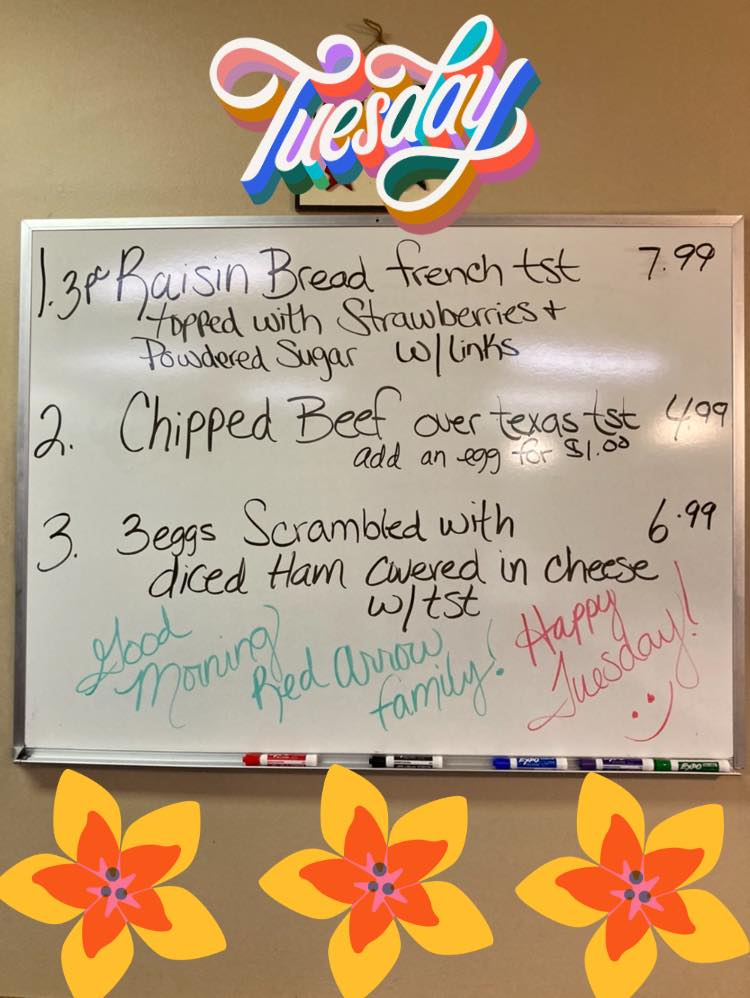 Tuesday
1. 3pc Raisin Bread french tst 7.99
topped with Strawberries +
Powdered Sugar w/links
2. Chipped Beef over texas tst 4.99
add an egg for $1.00
3. 3eggs Scrambled with 6.99
diced Ham covered in cheese
w/tst
Good
Morning
Red Arrow
family!
Happy
Tuesday!
EXPO
EXPO